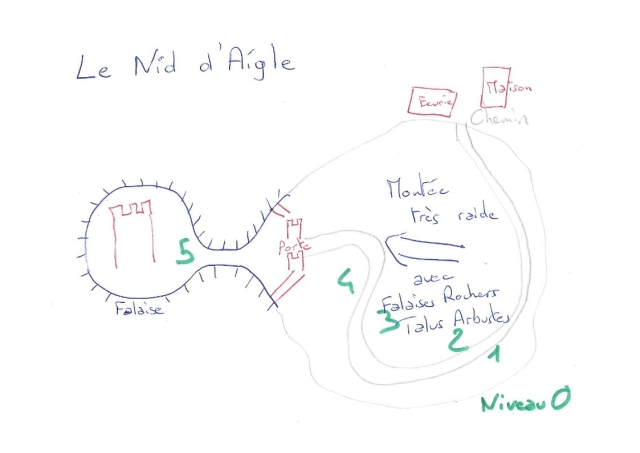 Le Nid d'Aigle
Ecurie
Maison
Chemin
Montée
très raide
Porte
5
4
avec
Falaises Rochers
3 Talus Arbustes
2
1
Falaise
Niveau 0